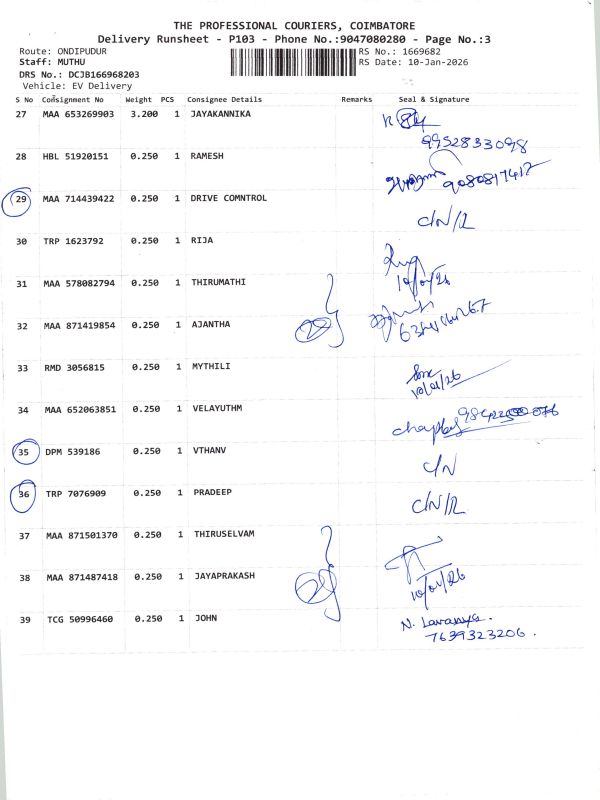 THE PROFESSIONAL COURIERS, COIMBATORE
Delivery Runsheet - P103 - Phone No.:9047080280 - Page No.:3
Route: ONDIPUDUR
RS No.: 1669682
Staff: MUTHU
RS Date: 10-Jan-2026
DRS No.: DCJB166968203
Vehicle: EV Delivery
S No Consignment No Weight PCS Consignee Details Remarks Seal & Signature
27 MAA 653269903 3.200 1 JAYAKANNIKA
9952833098
28 HBL 51920151 0.250 1 RAMESH
9080817417
29 MAA 714439422 0.250 1 DRIVE COMNTROL
C/N/R
30 TRP 1623792 0.250 1 RIJA
10/01/26
31 MAA 578082794 0.250 1 THIRUMATHI
32 MAA 871419854 0.250 1 AJANTHA
33 RMD 3056815 0.250 1 MYTHILI
10/01/26
34 MAA 652063851 0.250 1 VELAYUTHM
35 DPM 539186 0.250 1 VTHANV
C/N
36 TRP 7076909 0.250 1 PRADEEP
C/N/R
37 MAA 871501370 0.250 1 THIRUSELVAM
38 MAA 871487418 0.250 1 JAYAPRAKASH
10/01/26
39 TCG 50996460 0.250 1 JOHN
N. Lavanya.
7639323206.